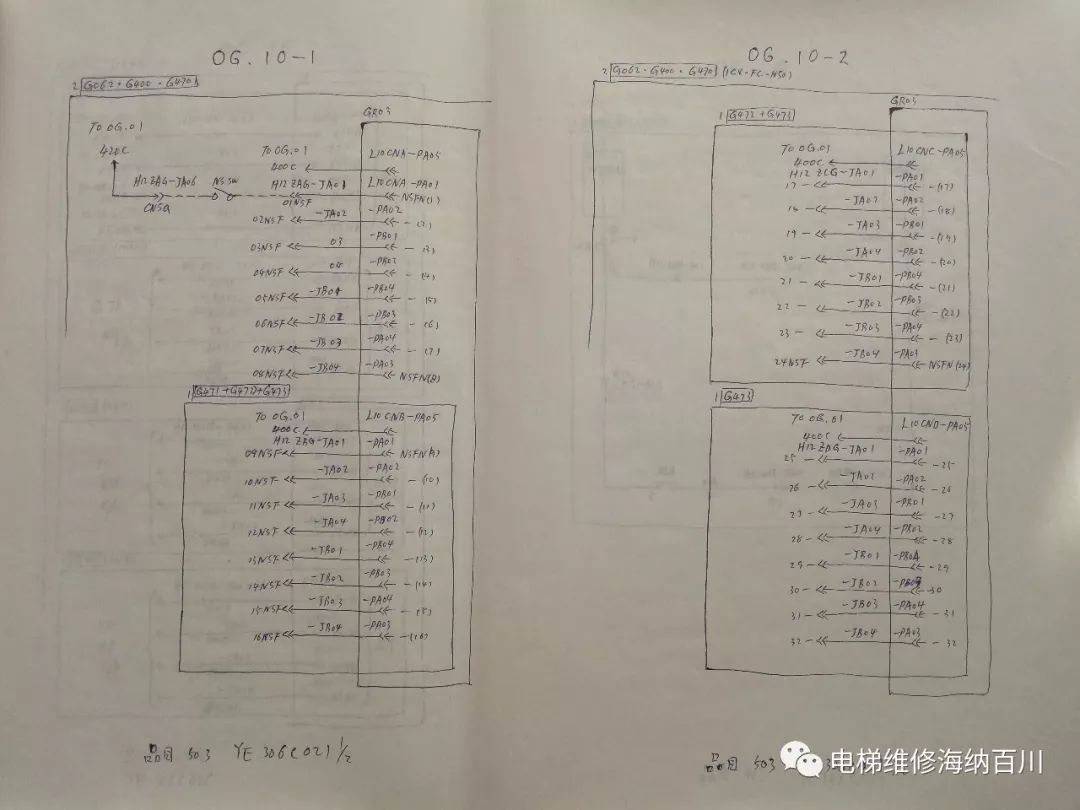 OG.10-1
2 G062・G400・G470
GR03
TO OG.01
420C
TO OG.01
L10CNA-PA05
400C
H12 ZAG-JA06 NS SW H12 ZAG-JA01 L10CNA-PA01
CN5Q 01NSF NSFN(1)
-JA02 -PA02
02NSF -(2)
03 -PB01
03NSF -(3)
04 -PB02
04NSF -(4)
-JB01 -PB04
05NSF -(5)
-JB02 -PB03
06NSF -(6)
-JB03 -PA04
07NSF -(7)
-JB04 -PA03
08NSF NSFN(8)
1 (G471+G472)+G473
TO OG.01 L10CNB-PA05
400C
H12 ZAG-JA01 -PA01
09NSF
-JA02 -PA02
10NSF -(10)
-JA03 -PB01
11NSF -(11)
-JA04 -PB02
12NSF -(12)
-JB01 -PB04
13NSF -(13)
-JB02 -PB03
14NSF -(14)
-JB03 -PA04
15NSF -(15)
-JB04 -PA03
16NSF -(16)
品目 503 YE306C021 1/2
OG.10-2
2 G062・G400・G470
GR03
1 G472+G473
TO OG.01 L10CNC-PA05
400C
H12 ZCG-JA01 -PA01
17- -(17)
-JA02 -PA02
18- -(18)
-JA03 -PB01
19- -(19)
-JA04 -PB02
20- -(20)
-JB01 -PB04
21- -(21)
-JB02 -PB03
22- -(22)
-JB03 -PA04
23- -(23)
-JB04 -PA03
24NSF NSFN(24)
1 G473
TO OG.01 L10CND-PA05
400C
H12 ZDG-JA01 -PA01
25- -25
-JA02 -PA02
26- -26
-JA03 -PB01
27- -27
-JA04 -PB02
28- -28
-JB01 -PB04
29- -29
-JB02
30- -30
-JB03 -PA04
31- -31
-JB04 -PA03
32- -32
品目 503
电梯维修海纳百川